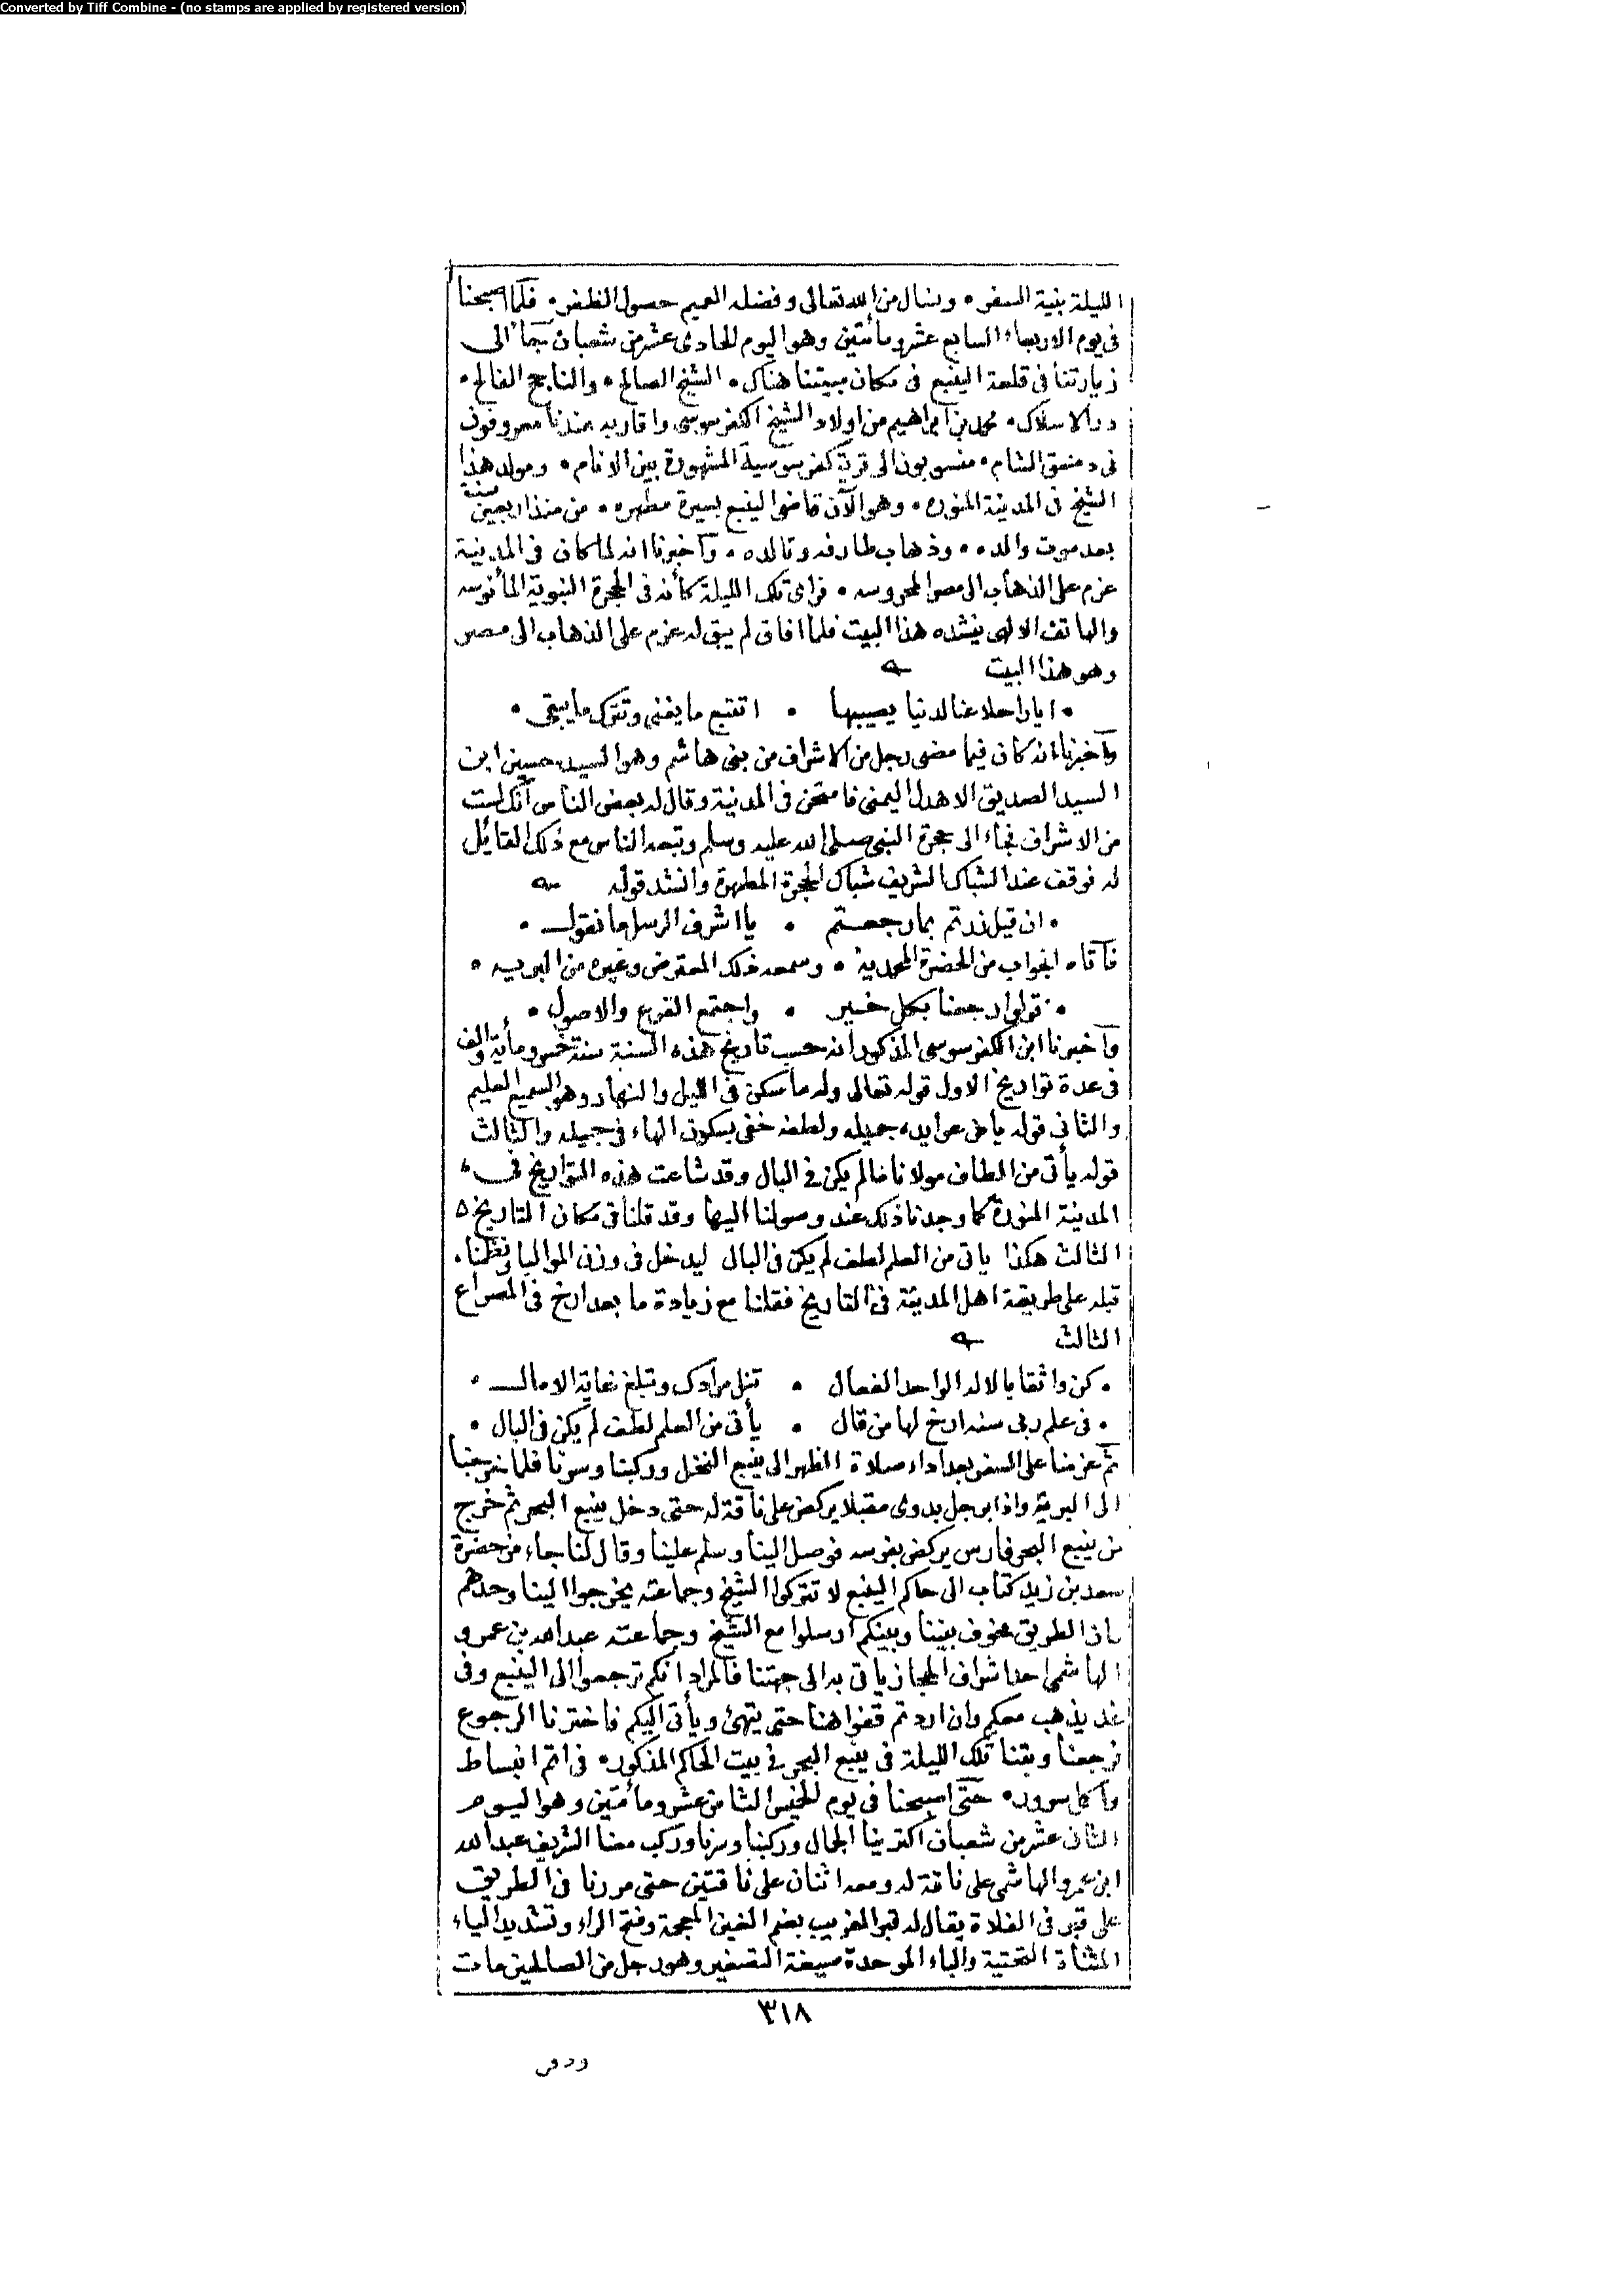 Converted by Tiff Combine - (no stamps are applied by registered version)
الليلة بنية السفر ۰ ونسال من الله تعالى وفضله العميم حصول الظفر ۰ فلما اصبحنا
فى يوم الاربعاء السابع عشر ومأتين وهو اليوم الحادى عشر من شعبان جاء الى
زيارتنا فى قلعة الينبع فى مكان مبيتنا هناك ۰ الشيخ الصالح ۰ والناجح الفالح ۰
در الاسلاك ۰ محمد بن ابراهيم من اولاد الشيخ الكفرسوسى واقاربه عندنا معروفون
فى دمشق الشام ۰ منسوبون الى قرية كفرسوسية المشهورة بين الانام ۰ ومولد هذا
الشيخ فى المدينة المنوره ۰ وهو الآن قاضى الينبع بسيرة مطهره ۰ من منذ اربعين سنة
بعد موت والده ۰ وذهاب طارفه وتالده ۰ وآخبرنا انه لما كان فى المدينة
عزم على الذهاب الى مصر المحروسه ۰ فراى تلك الليلة كأنه فى الحجرة النبوية المأنوسه
والهاتف الالهى ينشده هذا البيت فلما افاق لم يبق له عزم على الذهاب الى مصر
وهو هذا البيت
۰ ايا راحلا عنا لدنيا يصيبها ۰ اتتبع ما يفنى وتترك ما يبقى ۰
وآخبرنا انه كان فيما مضى رجل من الاشراف من بنى هاشم وهو السيد حسين ابن
السيد الصديق الاهدل اليمنى فامتحن فى المدينة وقال له بعض الناس انك لست
من الاشراف فجاء الى حجرة النبى صلى الله عليه وسلم وتبعه الناس مع ذلك القائل
له فوقف عند الشباك الشريف شباك الحجرة المطهرة وانشد قوله
۰ ان قيل زرتم بما رجعتم ۰ يا اشرف الرسل ما نقول ۰
فآتاه الجواب من الحضرة المحمديه ۰ وسمعه ذلك المعترض وغيره من البريه ۰
۰ قولوا رجعنا بكل خير ۰ واجتمع الفرع والاصول ۰
وآخبرنا ابن الكفرسوسى المذكور انه حسب تاريخ هذه السنة سنة خمس ومأية والف
فى عدة تواريخ الاول قوله تعالى وله ما سكن فى الليل والنهار وهو السميع العليم
والثانى قوله عوايده جميله ولطفه خفى بسكون الهاء فى جميله والثالث
قوله يأتى من الطاف مولانا مالم يكن فى البال وقد شاعت هذه التواريخ فى
المدينة المنورة كما وجدنا ذلك عند وصولنا اليها وقد قلنا فى مكان التاريخ
الثالث هكذا ياتى من العلم لطف لم يكن فى البال ليدخل فى وزن المواليا ونظمنا
قبله على طريقة اهل المدينة فى التاريخ فقلنا مع زيادة ما بعد ارخ فى المصراع
الثالث
۰ كن واثقا بالاله الواحد الفعال ۰ تنل مرادك وتبلغ غاية الامال ۰
۰ فى علم ربى سنه ارخ لها من قال ۰ يأتى من العلم لطف لم يكن فى البال ۰
ثم عزمنا على السفر بعد اداء صلاة الظهر الى ينبع النخل وركبنا وسرنا فلما خرجنا
الى البرية واذا برجل بدوى مقبلا يركض على ناقة له حتى دخل ينبع البحر ثم خرج
من ينبع البحر فارس يركض بفرسه فوصل الينا وسلم علينا وقال لنا جاء من حضرة
سعد بن زيد كتاب الى حاكم الينبع لا تتركوا الشيخ وجماعته يخرجوا الينا وحدهم
فان الطريق مخوف بيننا وبينكم ارسلوا مع الشيخ وجماعته عبد الله بن عمرو
الهاشمى احد اشراف الحجاز ياتى به الى جهتنا فالمراد انكم ترجعوا الى الينبع وفى
غد يذهب معكم وان اردتم قفوا هنا حتى يتهئ ويأتى اليكم فاخترنا الرجوع
فرجعنا وبتنا تلك الليلة فى ينبع البحر فى بيت الحاكم المذكور ۰ فى اتم انبساط
وآكمل سرور ۰ حتى اصبحنا فى يوم الخميس الثامن عشر ومأتين وهو اليوم
الثانى عشر من شعبان اكترينا الجمال وركبنا وسرنا وركب معنا الشريف عبد الله
ابن عمرو الهاشمى على ناقة له ومعه اثنان على ناقتين حتى مررنا فى الطريق
على قبر فى الفلاة يقال له قبر الغريب بضم الغين المعجمة وفتح الراء وتشديد الياء
المثناة التحتية والباء الموحدة صيغة التصغير وهو رجل من الصالحين مات
٣١٨